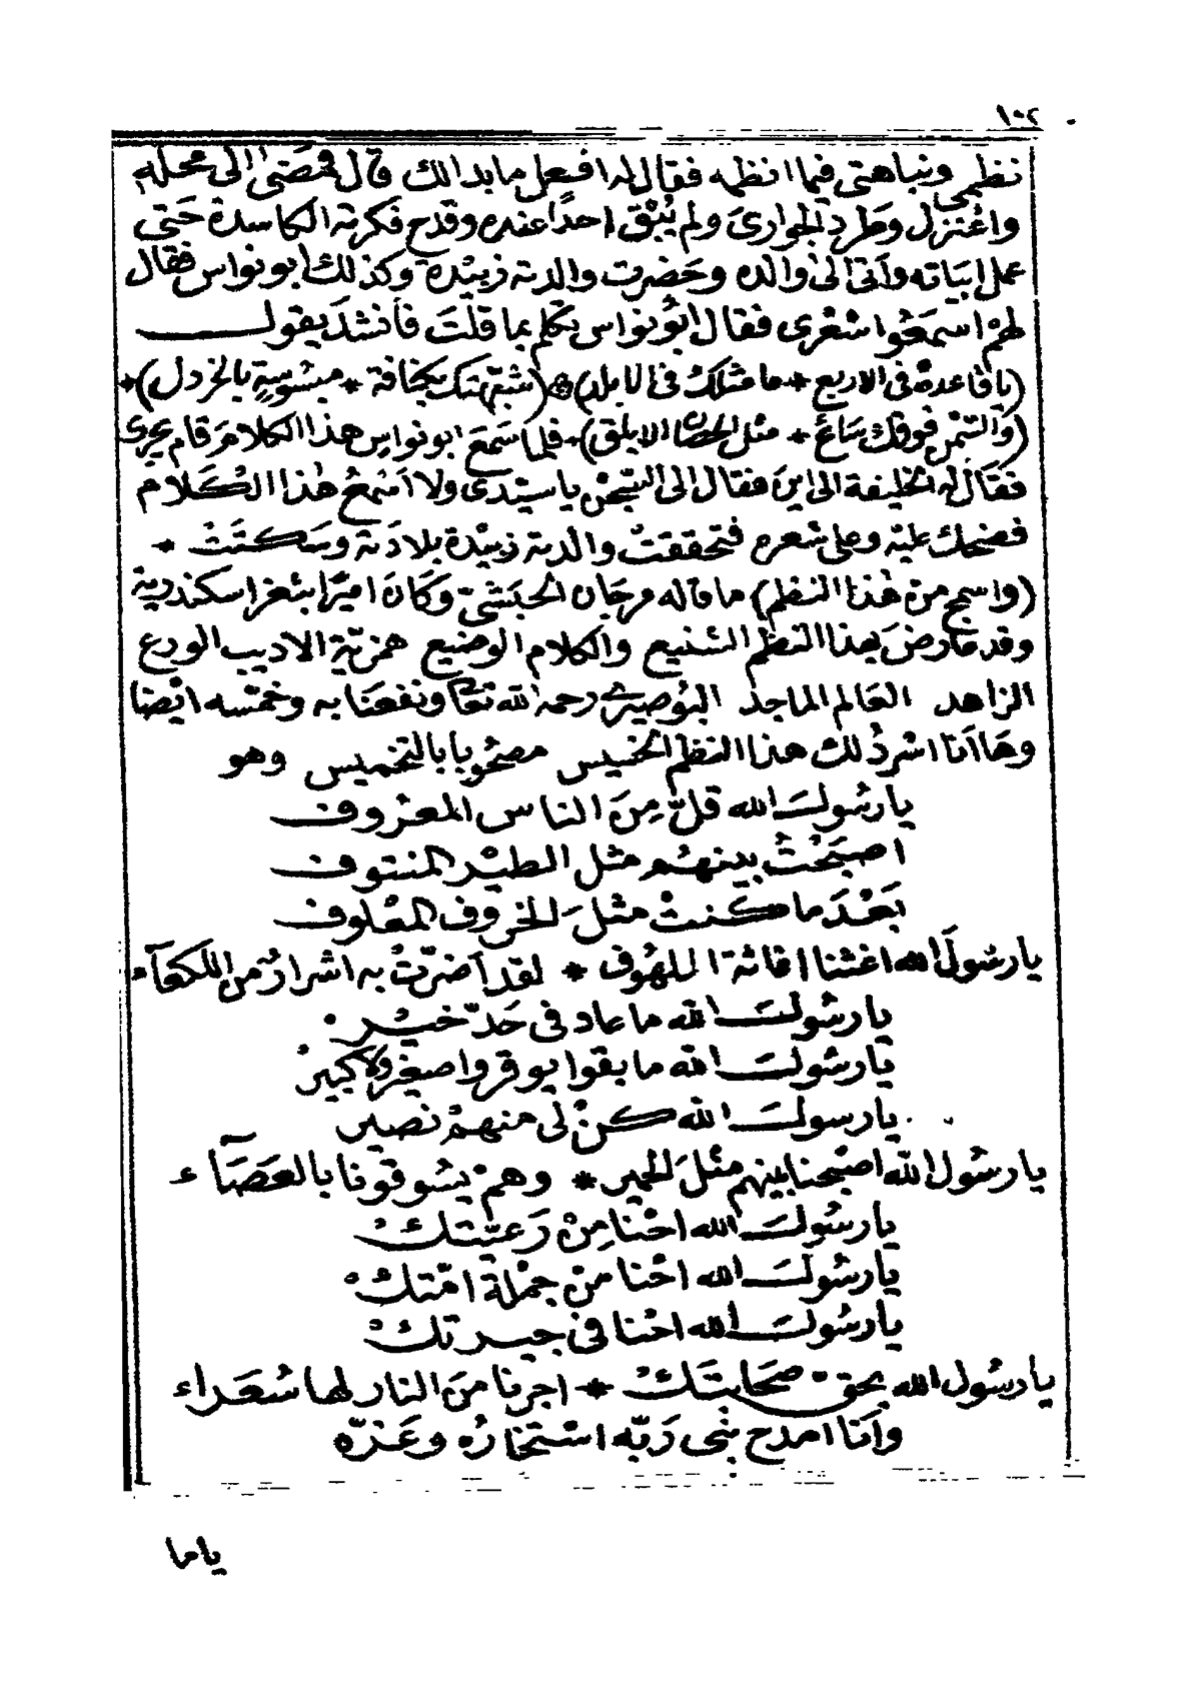 ١٠٢
نظمي ونباهتي فيما انظمه فقال له افعل ما بدالك قال فمضَى الى محله
واعْتزل وَطرد الجوارىَ ولم يُبْق احدًا عنده وقدح فكرته الكاسدة حَتى
عمل ابيَاته وأتى الى والده وحَضرت والدته زبيْدة وكذلك ابو نواس فقال
لهمْ اسمَعُوا شعْرى فقال ابُو نواس تكلم بما قلتَ فأنشدَ يقول
(يا قاعدهْ فى الاربع * ما مثلكْ فى البلد) (شبّهتك بكنافة * مبسُوسةٍ بالخردل) *
(وَالشمْس فوقك سَاعْ * مثل الحصان الابلق) * فلما سَمَعَ ابو نواس هذا الكلامَ قام يجرى
فقَال له الخليفة الى اين فقال الى السّجنْ يا سيّدى ولا اسْمعُ هٰذا الكَلام
فضحك عليْه وعلى شعره فتحققتْ والدته زبيْدة بلادَته وسَكتَتْ *
(واسمج من هٰذا النظم) ما قاله مرجَان الحبَشىّ وكَانَ اميْرًا بثغر اسكندرية
وقد عَارضَ بهذا النظم الشنيع والكلام الوضيع همزيّة الاديب الورع
الزاهد العَالم الماجد البُوصيرىّ رحمه الله تعَالى ونفعَنا به وخمّسه ايْضا
وهَا أنا اسْردُ لك هذا النظم الخسيس مصحُوبا بالتخميس وهو
يا رسُولَ الله قلّ مِنَ الناس المعْروف
اصبَحْتُ بينهُم مثل الطيْر المنتوف
بَعْدَ ما كنتْ مثلَ الخرُوف المعْلوف
يا رسُولَ الله اغثنا اغاثة الملهُوف * لقد اضرّتْ به اشرارٌ من اللكعَآء
يا رسُولَ الله ما عاد فى حَدّ خيْر
يا رسُولَ الله ما بقوا يوقروا صغير ولا كبيرْ
يا رسولَ الله كنْ لى منهمْ نصير
يا رسُول الله اصْبحنا بينهم مثلَ الحمير * وهمْ يسُوقونا بالعَصَآء
يا رسُولَ الله احْنا مِنْ رَعيّتكْ
يا رسُولَ الله احْنا منْ جمْلة امّتكْ
يا رسُولَ الله احْنا فى جيرتكْ
يا رسُول الله بحق صَحَابتَكْ * اجرنا منَ النار لها شعَراء
وأنا امدح نبى رَبّه اسْتخارُه وعَزّه
ياما